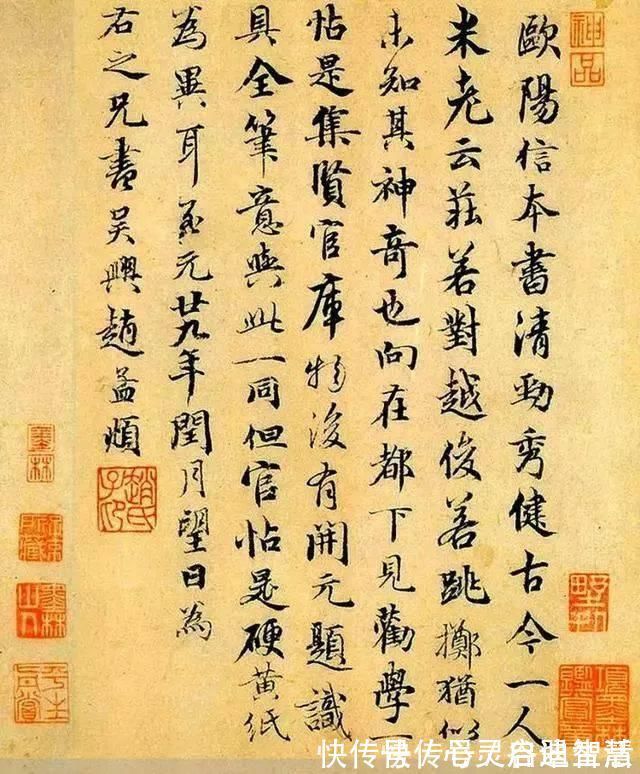 歐陽信本書清勁秀健古今一人
米老云莊若對越俊若跳擲猶似
未知其神奇也向在都下見勸學一
帖是集賢官庫物後有開元題識
具全筆意與此一同但官帖是硬黃紙
為異耳至元廿九年閏月望日為
右之兄書吳興趙孟頫
趙氏子昂
神品
墨林
墨林山人
平生真賞